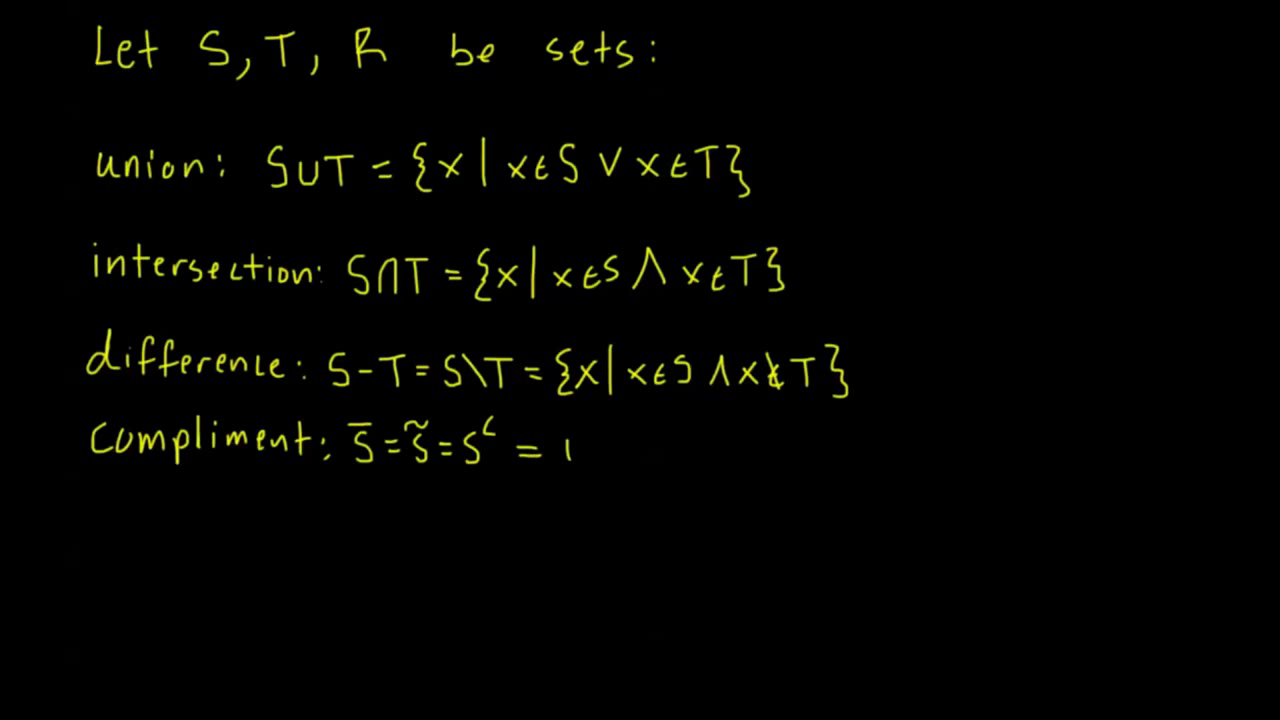 Let S, T, R be sets:
union: S∪T = {x | x∈S ∨ x∈T}
intersection: S∩T = {x | x∈S ∧ x∈T}
difference: S-T = S\T = {x | x∈S ∧ x∉T}
compliment: S̅ = S̃ = Sᶜ =